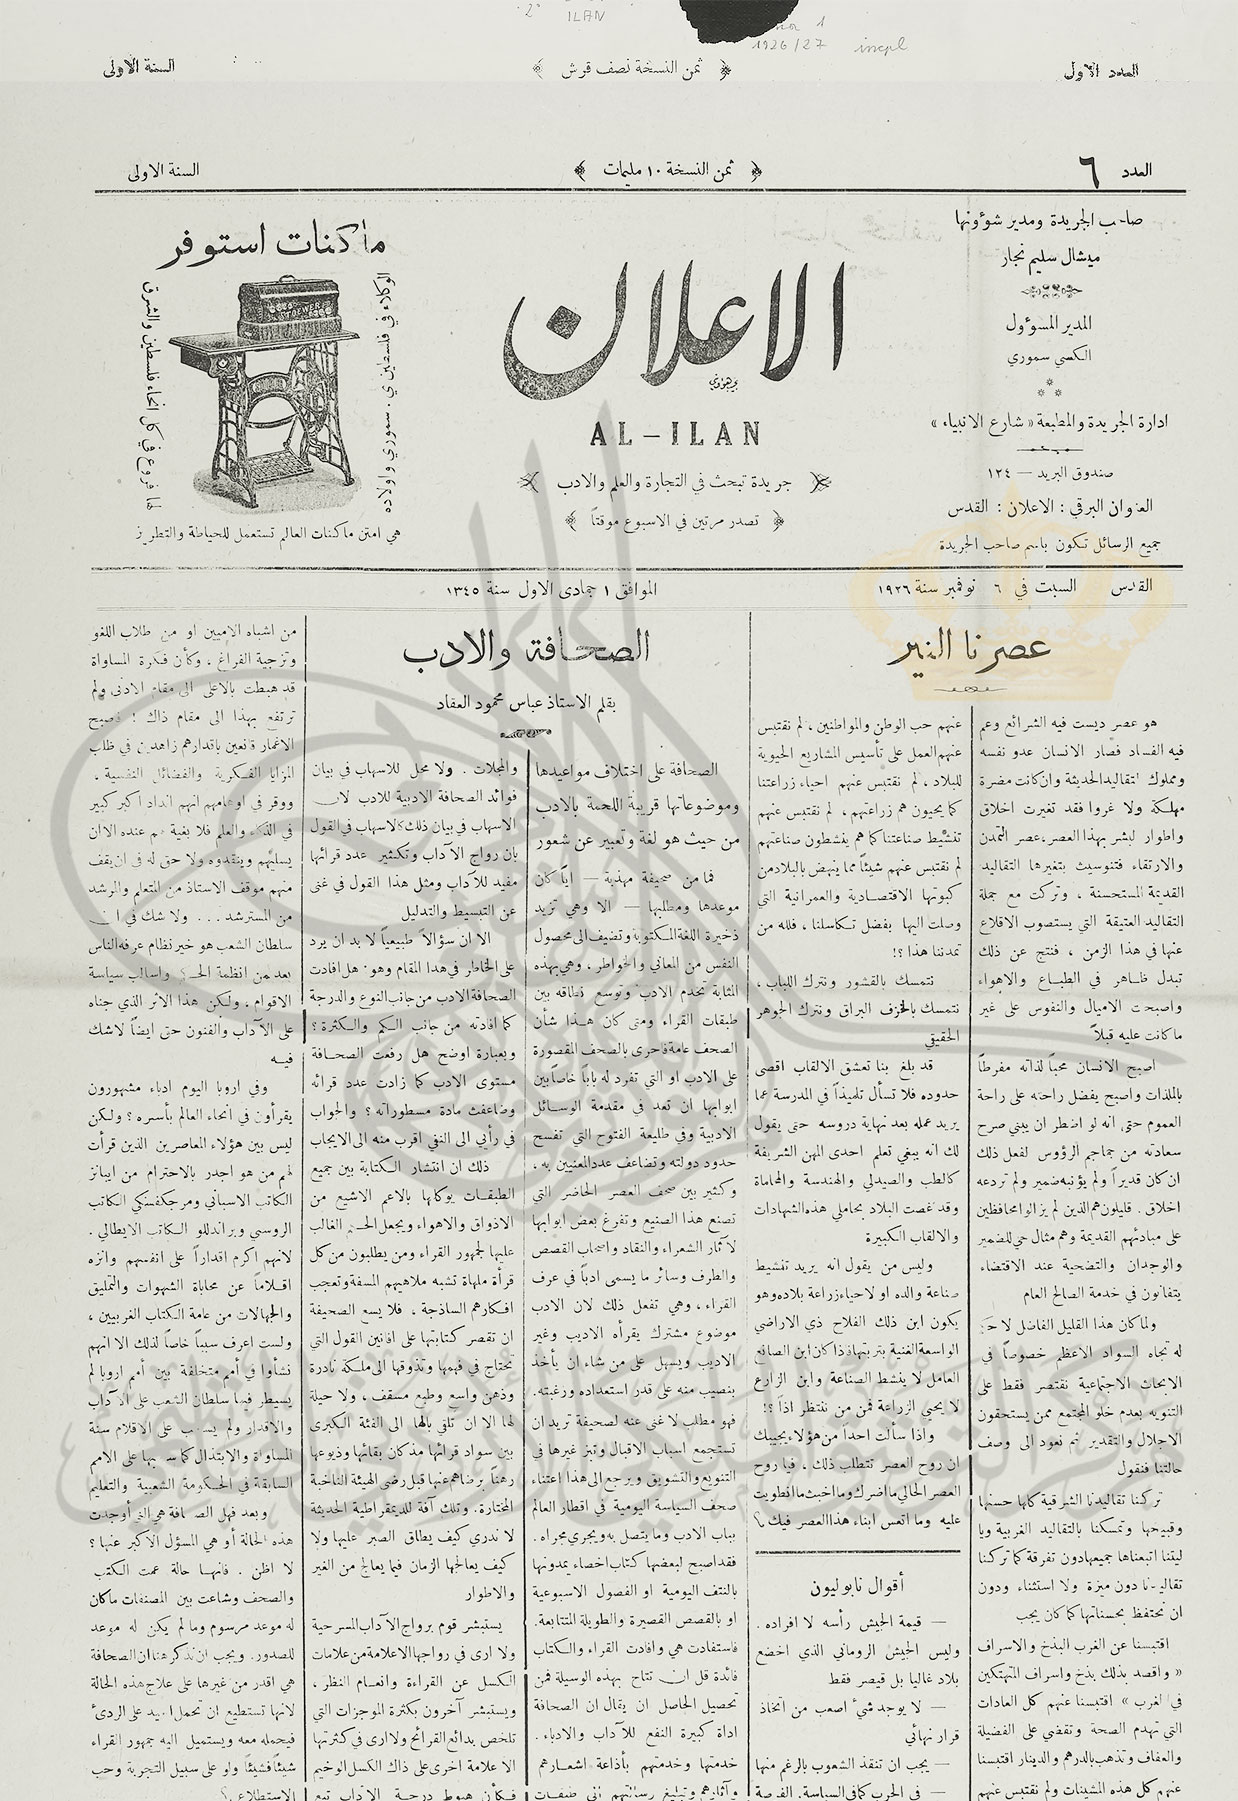 ILAN
1926/27 incpl
العدد الاول
ثمن النسخة نصف قرش
السنة الاولى
العدد ٦
ثمن النسخة ١٠ مليمات
السنة الاولى
صاحب الجريدة ومدير شؤونها
ميشال سليم نجار
المدير المسؤول
الكسي سموري
ادارة الجريدة والمطبعة «شارع الانبياء»
صندوق البريد — ١٢٤
العنوان البرقي : الاعلان : القدس
جميع الرسائل تكون باسم صاحب الجريدة
الاعلان
AL-ILAN
جريدة تبحث في التجارة والعلم والادب
تصدر مرتين في الاسبوع موقتاً
ماكنات استوفر
الوكلاء في فلسطين ي . سموري واولاده
لها فروع في كل انحاء فلسطين والشرق
هي امتن ماكنات العالم تستعمل للخياطة والتطريز
القدس السبت في ٦ نوفمبر سنة ١٩٢٦
الموافق ١ جمادى الاول سنة ١٣٤٥
عصرنا النير
هو عصر ديست فيه الشرائع وعم
فيه الفساد فصار الانسان عدو نفسه
ومملوك التقاليد الحديثة وان كانت مضرة
مهلكة ولا غروا فقد تغيرت اخلاق
واطوار البشر بهذا العصر، عصر التمدن
والارتقاء فتنوسيت بتغيرها التقاليد
القديمة المستحسنة ، وتركت مع جملة
التقاليد العتيقة التي يستصوب الاقلاع
عنها في هذا الزمن ، فنتج عن ذلك
تبدل ظاهر في الطباع والاهواء
واصبحت الاميال والنفوس على غير
ما كانت عليه قبلاً
اصبح الانسان محباً لذاته مفرطاً
بالملذات واصبح يفضل راحته على راحة
العموم حتى انه لو اضطر ان يبني صرح
سعادته من جماجم الرؤوس لفعل ذلك
ان كان قديراً ولم يؤنبه ضمير ولم تردعه
اخلاق . قليلون هم الذين لم يزالوا محافظين
على مبادئهم القديمة وهم مثال حي للضمير
والوجدان والتضحية عند الاقتضاء
يتفانون في خدمة الصالح العام
ولما كان هذا القليل الفاضل لا
له تجاه السواد الاعظم خصوصاً في
الابحاث الاجتماعية نقتصر فقط على
التنويه بعدم خلو المجتمع ممن يستحقون
الاجلال والتقدير ثم نعود الى وصف
حالتنا فنقول
تركنا تقاليدنا الشرقية كلها حسنها
وقبيحها وتمسكنا بالتقاليد الغربية ويا
ليتنا اتبعناها جميعها دون تفرقة كما تركنا
تقاليدنا دون ميزة ولا استثناء ودون
ان نحتفظ بحسناتها كما كان يجب
اقتبسنا عن الغرب البذخ والاسراف
« واقصد بذلك بذخ واسراف المتهتكين
في الغرب » اقتبسنا عنهم كل العادات
التي تهدم الصحة وتقضي على الفضيلة
والعفاف وتذهب بالدرهم والدينار اقتبسنا
عنهم كل هذه المشينات ولم نقتبس عنهم
عنهم حب الوطن والمواطنين ، لم نقتبس
عنهم العمل على تأسيس المشاريع الحيوية
للبلاد ، لم نقتبس عنهم احياء زراعتنا
كما يحيون هم زراعتهم ، لم نقتبس عنهم
تنشيط صناعتنا كما هم ينشطون صناعتهم
لم نقتبس عنهم شيئاً مما ينهض بالبلاد من
كبوتها الاقتصادية والعمرانية التي
وصلت اليها بفضل تكاسلنا ، فلله من
تمدننا هذا ؟!
نتمسك بالقشور ونترك اللباب ،
نتمسك بالخزف البراق ونترك الجوهر
الحقيقي
قد بلغ بنا تعشق الالقاب اقصى
حدوده فلا تسأل تلميذاً في المدرسة عما
يريد عمله بعد نهاية دروسه حتى يقول
لك انه يبغي تعلم احدى المهن الشريفة
كالطب والصيدلي والهندسة والمحاماة
وقد غصت البلاد بحاملي هذه الشهادات
والالقاب الكبيرة
وليس من يقول انه يريد تنشيط
صناعة والده او لاحياء زراعة بلاده وهو
يكون ابن ذلك الفلاح ذي الاراضي
الواسعة الغنية بتربتها فاذا كان ابن الصانع
العامل لا ينشط الصناعة وابن الزارع
لا يحيي الزراعة فمن من ننتظر اذاً ؟!
واذا سألت احداً من هؤلاء يجيبك
ان روح العصر تتطلب ذلك ، فيا روح
العصر الحالي ما اضرك وما اخبث ما انطويت
عليه وما اتعس ابناء هذا العصر فيك ؟
أقوال نابوليون
— قيمة الجيش رأسه لا افراده .
وليس الجيش الروماني الذي اخضع
بلاد غاليا بل قيصر فقط
— لا يوجد شيء اصعب من اتخاذ
قرار نهائي
— يجب ان تنقذ الشعوب بالرغم منها
— في الحرب كما في السياسة. الفرصة
الصحافة والادب
بقلم الاستاذ عباس محمود العقاد
الصحافة على اختلاف مواعيدها
وموضوعاتها قريبة اللحمة بالادب
من حيث هو لغة وتعبير عن شعور
فما من صحيفة مهذبة — اياً كان
موعدها ومطلبها — الا وهي تزيد
ذخيرة اللغة المكتوبة وتضيف الى محصول
النفس من المعاني والخواطر ، وهي بهذه
المثابة تخدم الادب وتوسع نطاقه بين
طبقات القراء ومتى كان هذا شأن
الصحف عامة فاحرى بالصحف المقصورة
على الادب او التي تفرد له باباً خاصاً بين
ابوابها ان تعد في مقدمة الوسائل
الادبية وفي طليعة الفتوح التي تفسح
حدود دولته وتضاعف عدد المعنيين به .
وكثير بين صحف العصر الحاضر التي
تصنع هذا الصنيع وتفرغ بعض ابوابها
لآثار الشعراء والنقاد واصحاب القصص
والطرف وسائر ما يسمى ادباً في عرف
القراء ، وهي تفعل ذلك لان الادب
موضوع مشترك يقرأه الاديب وغير
الاديب ويسهل على من شاء ان يأخذ
بنصيب منه على قدر استعداده ورغبته.
فهو مطلب لا غنى عنه لصحيفة تريد ان
تستجمع اسباب الاقبال وتبز غيرها في
التنويع والتشويق ويرجع الى هذا اعتناء
صحف السياسة اليومية في اقطار العالم
بباب الادب وما يتصل به ويجري مجراه.
فقد اصبح لبعضها كتاب اخصاء يمدونها
بالنتف اليومية او الفصول الاسبوعية
او بالقصص القصيرة والطويلة المتتابعة.
فاستفادت هي وافادت القراء والكتاب
فائدة قل ان تتاح بهذه الوسيلة فمن
تحصيل الحاصل ان يقال ان الصحافة
اداة كبيرة النفع للآداب والادباء.
خدمتها وخدمتهم بأذاعة اشعارهم
وآثارهم وتبليغ رسالتهم الى طبقات
والمجلات . ولا محل للاسهاب في بيان
فوائد الصحافة الادبية للادب لان
الاسهاب في بيان ذلك كالاسهاب في القول
بان رواج الآداب وتكثير عدد قرائها
مفيد للآداب ومثل هذا القول في غنى
عن التبسيط والتدليل
الا ان سؤالاً طبيعياً لا بد ان يرد
على الخاطر في هذا المقام وهو : هل افادت
الصحافة الادب من جانب النوع والدرجة
كما افادته من جانب الكم والكثرة ؟
وبعبارة اوضح هل رفعت الصحافة
مستوى الادب كما زادت عدد قرائه
وضاعفت مادة مسطوراته ؟ والجواب
في رأيي الى النفي اقرب منه الى الايجاب
ذلك ان انتشار الكتابة بين جميع
الطبقات يوكلها بالاعم الاشيع من
الاذواق والاهواء ويجعل الحكم الغالب
عليها لجمهور القراء ومن يطلبون من كل
قرأة ملهاة تشبه ملاهيهم المسفة وتعجب
افكارهم الساذجة ، فلا يسع الصحيفة
ان تقصر كتابتها على افانين القول التي
تحتاج في فهمها وتذوقها الى ملكة نادرة
وذهن واسع وطبع مسقف ، ولا حيلة
لها الا ان تلقي بالها الى الفئة الكبرى
بين سواد قرائها مذ كان بقائها وذيوعها
رهناً برضاهم عنها قبل رضى الهيئة الناخبة
المختارة. وتلك آفة للديمقراطية الحديثة
لا ندري كيف يطاق الصبر عليها ولا
كيف يعالجها الزمان فيما يعالج من الغير
والاطوار
يستبشر قوم برواج الآداب المسرحية
ولا ارى في رواجها الا علامة من علامات
الكسل عن القراءة وانعام النظر ،
ويستبشر آخرون بكثرة الموجزات التي
تلخص بدائع القرائح ولا ارى في كثرتها
الا علامة اخرى على ذاك الكسل الوخيم
فكأن هبوط درجة الآداب تبع
من اشباه الاميين او من طلاب اللغو
وتزجية الفراغ ، وكأن فكرة المساواة
قد هبطت بالاعلى الى مقام الادنى ولم
ترتفع بهذا الى مقام ذاك ! فاصبح
الاغمار قانعين باقدارهم زاهدين في طلب
المزايا الفكرية والفضائل النفسية .
ووقر في اوهامهم انهم انداد اكبر كبير
في الذكاء والعلم فلا بغية لهم عنده الا ان
يسليهم وينقدوه ولا حق له في ان يقف
منهم موقف الاستاذ من المتعلم والمرشد
من المسترشد . . . ولا شك في ان
سلطان الشعب هو خير نظام عرفه الناس
بعد من انظمة الحكم واساليب سياسة
الاقوام . ولكن هذا الاثر الذي جناه
على الآداب والفنون حق ايضاً لا شك
فيه
وفي اروبا اليوم ادباء مشهورون
يقرأون في انحاء العالم بأسره ؟ ولكن
ليس بين هؤلاء المعاصرين الذين قرأت
لهم من هو اجدر بالاحترام من ايبانز
الكاتب الاسباني ومرجكفسكي الكاتب
الروسي وبراندللو الكاتب الايطالي .
لانهم اكرم اقداراً على انفسهم وانزه
اقلاماً عن محاباة الشهوات والتمليق
والجهالات من عامة الكتاب الغربيين ،
ولست اعرف سبباً خاصاً لذلك الا انهم
نشأوا في أمم متخلفة بين أمم اروبا لم
يسيطر فيها سلطان الشعب على الآداب
والاقدار ولم على الاقلام سنة
المساواة والابتذال كما على الامم
السابقة في الحكومة الشعبية والتعليم
وبعد فهل الصحافة هي التي أوجدت
هذه الحالة أو هي المسؤل الاكبر عنها ؟
لا اظن . فانها حالة عمت الكتب
والصحف وشاعت بين المصنفات ما كان
له موعد مرسوم وما لم يكن له موعد
للصدور. ويجب ان نذكر هنا ان الصحافة
هي اقدر من غيرها على علاج هذه الحالة
لانها تستطيع ان تحمل الجيد على الردئ
فيحمله معه ويستميل اليه جمهور القراء
شيئاً فشيئاً ولو على سبيل التجربة وحب
الاستطلاع ؟